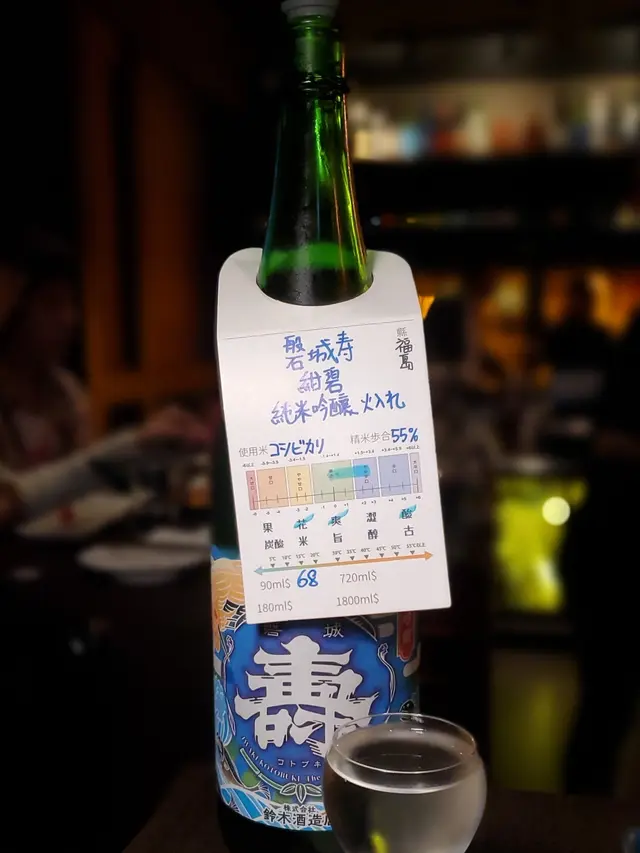 縣 福島
磐城寿
紺碧
純米吟醸 火入れ
使用米 コシヒカリ 精米歩合 55%
果 花 爽 澀 酸
炭酸 米 旨 醇 古
90ml$ 68 720ml$
180ml$ 1800ml$
磐城
壽
コトブキ
株式会社
鈴木酒造店